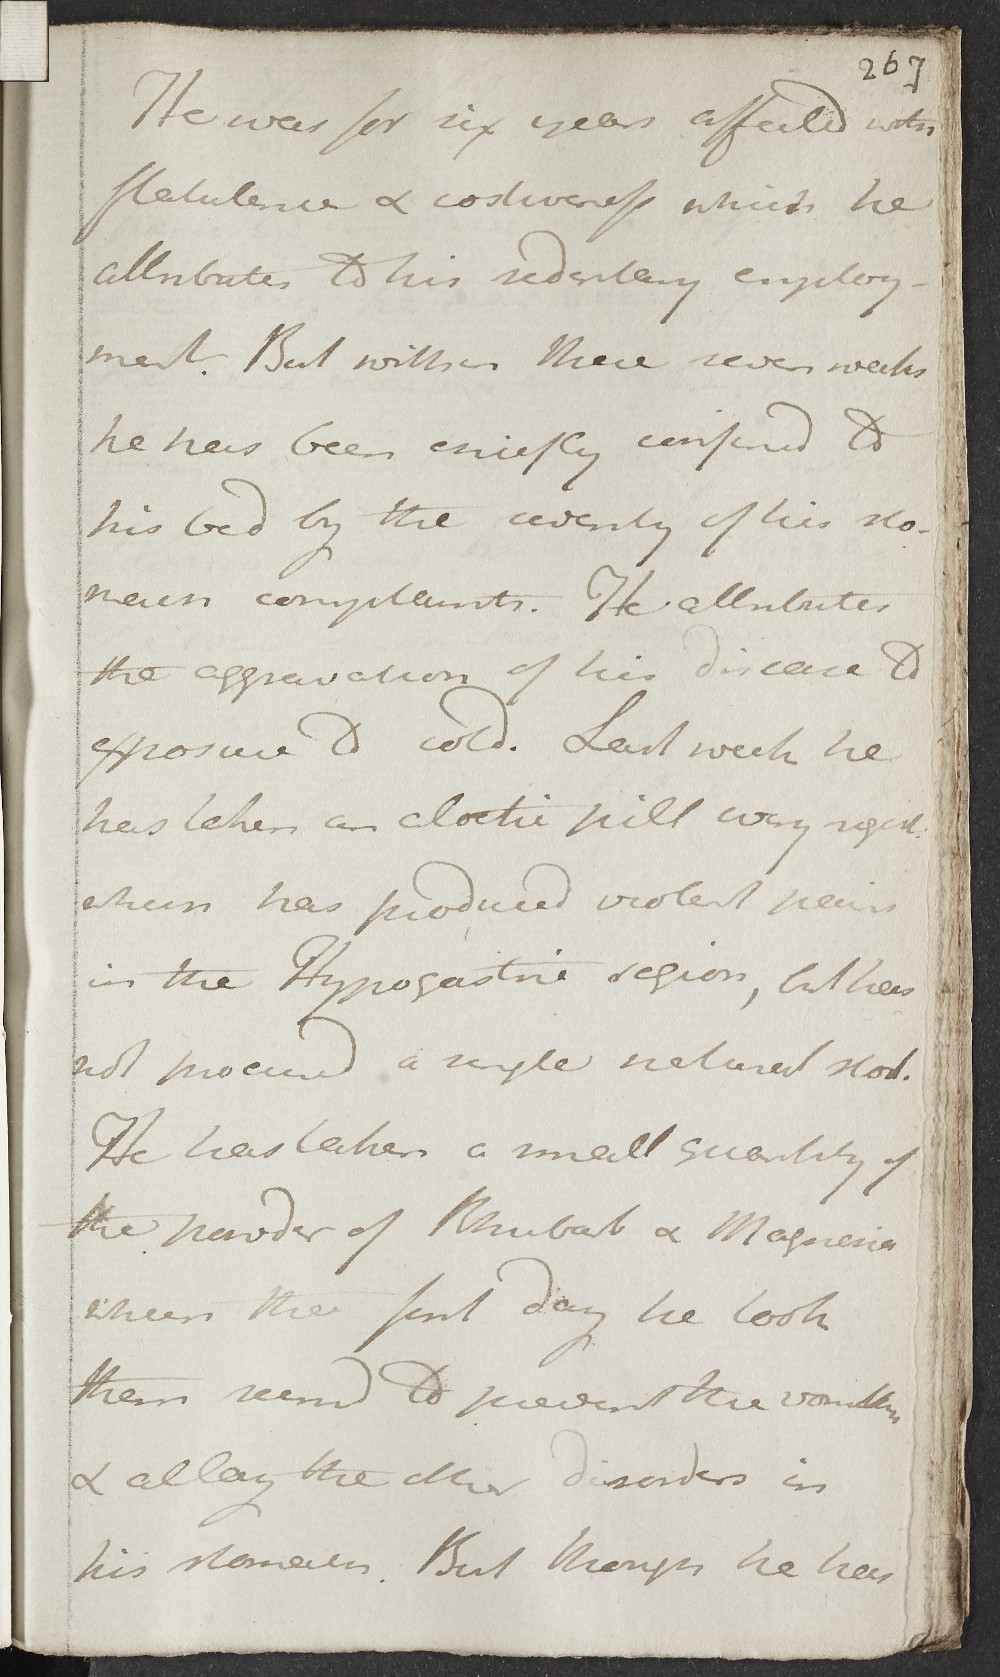 267
He was for six years affected with
flatulence & costiveness which he
attributes to his sedentary employ-
ment. But within these seven weeks
he has been chiefly confined to
his bed by the severity of his sto-
mach complaints. He attributes
the aggravation of his disease to
exposure to cold. Last week he
has taken an aloetic pill every night
which has produced violent pain
in the Hypogastric region, but has
not procured a single natural stool.
He has taken a small quantity of
the powder of Rhubarb & Magnesia
which the first day he took
them seemd to prevent the vomiting
& allay the other disorders in
his stomach. But though he has